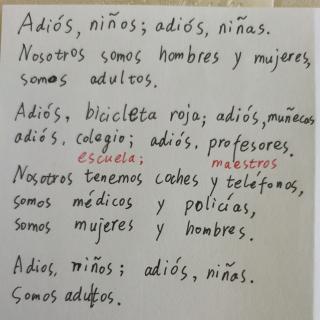 Adiós, niños; adiós, niñas.
Nosotros somos hombres y mujeres,
somos adultos.
Adiós, bicicleta roja; adiós, muñecos
adiós, colegio; adiós, profesores.
escuela; maestros
Nosotros tenemos coches y teléfonos,
somos médicos y policías,
somos mujeres y hombres.
Adios, niños; adiós, niñas.
Somos adultos.